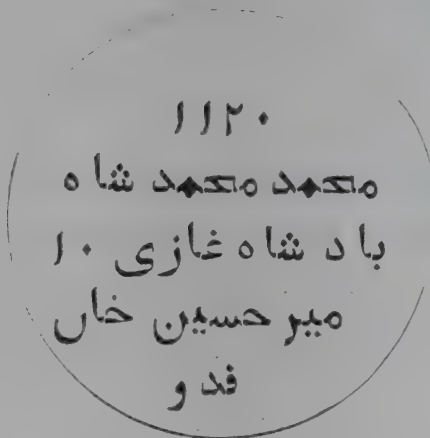 ۱۱۲۰
محمد محمد شاه
باد شاه غازی ۱۰
میر حسین خاں
فد و